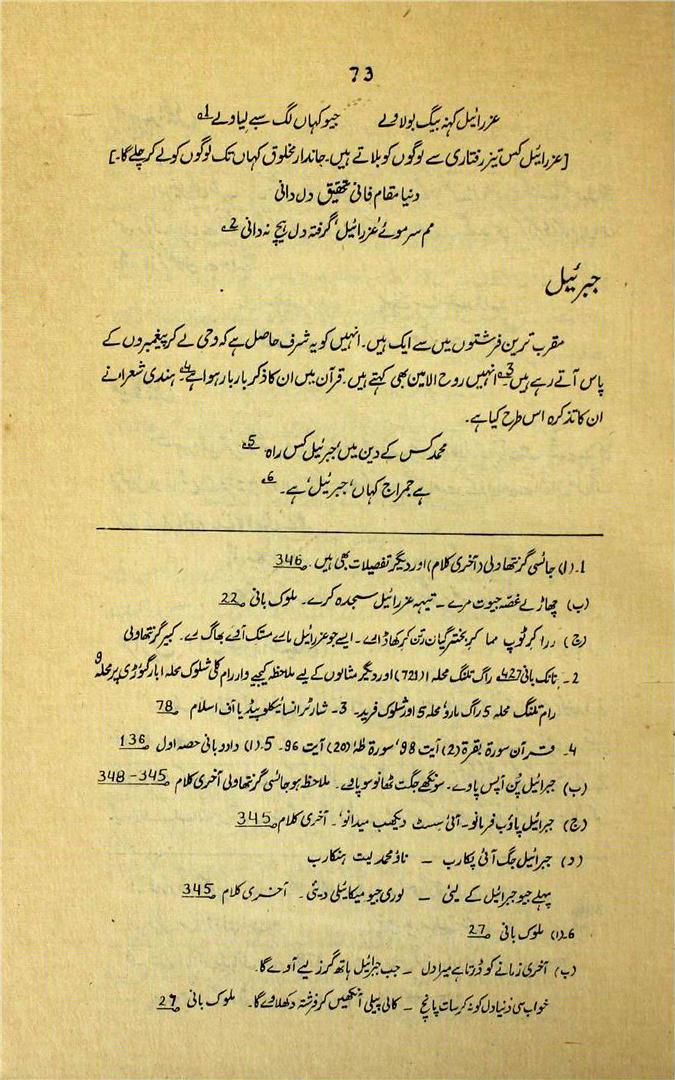 73
عزرائیل کہنہ بیگ بولاوے جیو کہاں لگ سبے لیاوے 1
[عزرائیل کس تیز رفتاری سے لوگوں کو بلاتے ہیں۔ جاندار مخلوق کہاں تک لوگوں کو لے کر چلے گا۔]
دنیا مقام فانی تحقیق دل دانی
مم سر موئے ‘عزرائیل’ گرفتہ دل ہیچ نہ دانی 2
جبرئیل
مقرب ترین فرشتوں میں سے ایک ہیں۔ انہیں کو یہ شرف حاصل ہے کہ وحی لے کر پیغمبروں کے
پاس آتے رہے ہیں 3 انہیں روح الامین بھی کہتے ہیں۔ قرآن میں ان کا ذکر بار بار ہوا ہے 4۔ ہندی شعرا نے
ان کا تذکرہ اس طرح کیا ہے۔
محمد کس کے دین میں ‘جبرئیل کس راہ 5
ہے جمراج کہاں ‘جبرئیل’ ہے۔ 6
1۔ (ا) جائسی گرنتھاولی (آخری کلام) اور دیگر تفصیلات بھی ہیں۔ 346
(ب) چھاڑے غصّہ جیوت مرے ۔ تیہہ عزرائیل سجدہ کرے۔ ملوک بانی 22
(ج) ررا کر ٹوپ مما کر بختر گیان رتن کر کھاڑ اے۔ ایسے جو عزرائیل مارے مستک آئے بھاگ لے۔ کبیر گرنتھاولی
2۔ نانک بانی 427 راگ تلنگ محلہ 1 (721) اور دیگر مثالوں کے لیے ملاحظہ کیجیے وار رام کلی شلوک محلہ 1 بار گوڑی پر محلہ 9
رام تلنگ محلہ 5 راگ مارو محلہ 5 اور شلوک فرید۔ 3۔ شارٹر انسائیکلوپیڈیا آف اسلام 78
4۔ قرآن سورۃ بقرۃ (2) آیت 98، سورۃ طٰہٰ (20) آیت 96۔ 5۔ (ا) دادد بانی حصہ اول 136
(ب) جبرائیل پُن آپس پاوے۔ سونگھے جگت ٹھانو سو پاوے۔ ملاحظہ ہو جائسی گرنتھاولی آخری کلام 345-348
(ج) جبرئیل پاؤب فرمانو۔ آئی سسٹ دیکھب میدانو’۔ آخری کلام 345
(د) جبرائیل جگ آئی پکارب ۔ ناؤ محمد لیت ہنکارب
پہلے جیو جبرائیل کے لیئی ۔ لوری جیو میکائیلی دیئی۔ آخری کلام 345
6۔ (ا) ملوک بانی 27
(ب) آخری زمانے کو ڈرتا ہے میرا دل ۔ جب جبرائیل ہاتھ گرز لیے آوے گا۔
خواب سی دُنیا دل کو نہ کر سات پانچ ۔ کالی پیلی آنکھیں کر فرشتہ دکھلاوے گا۔ ملوک بانی 27